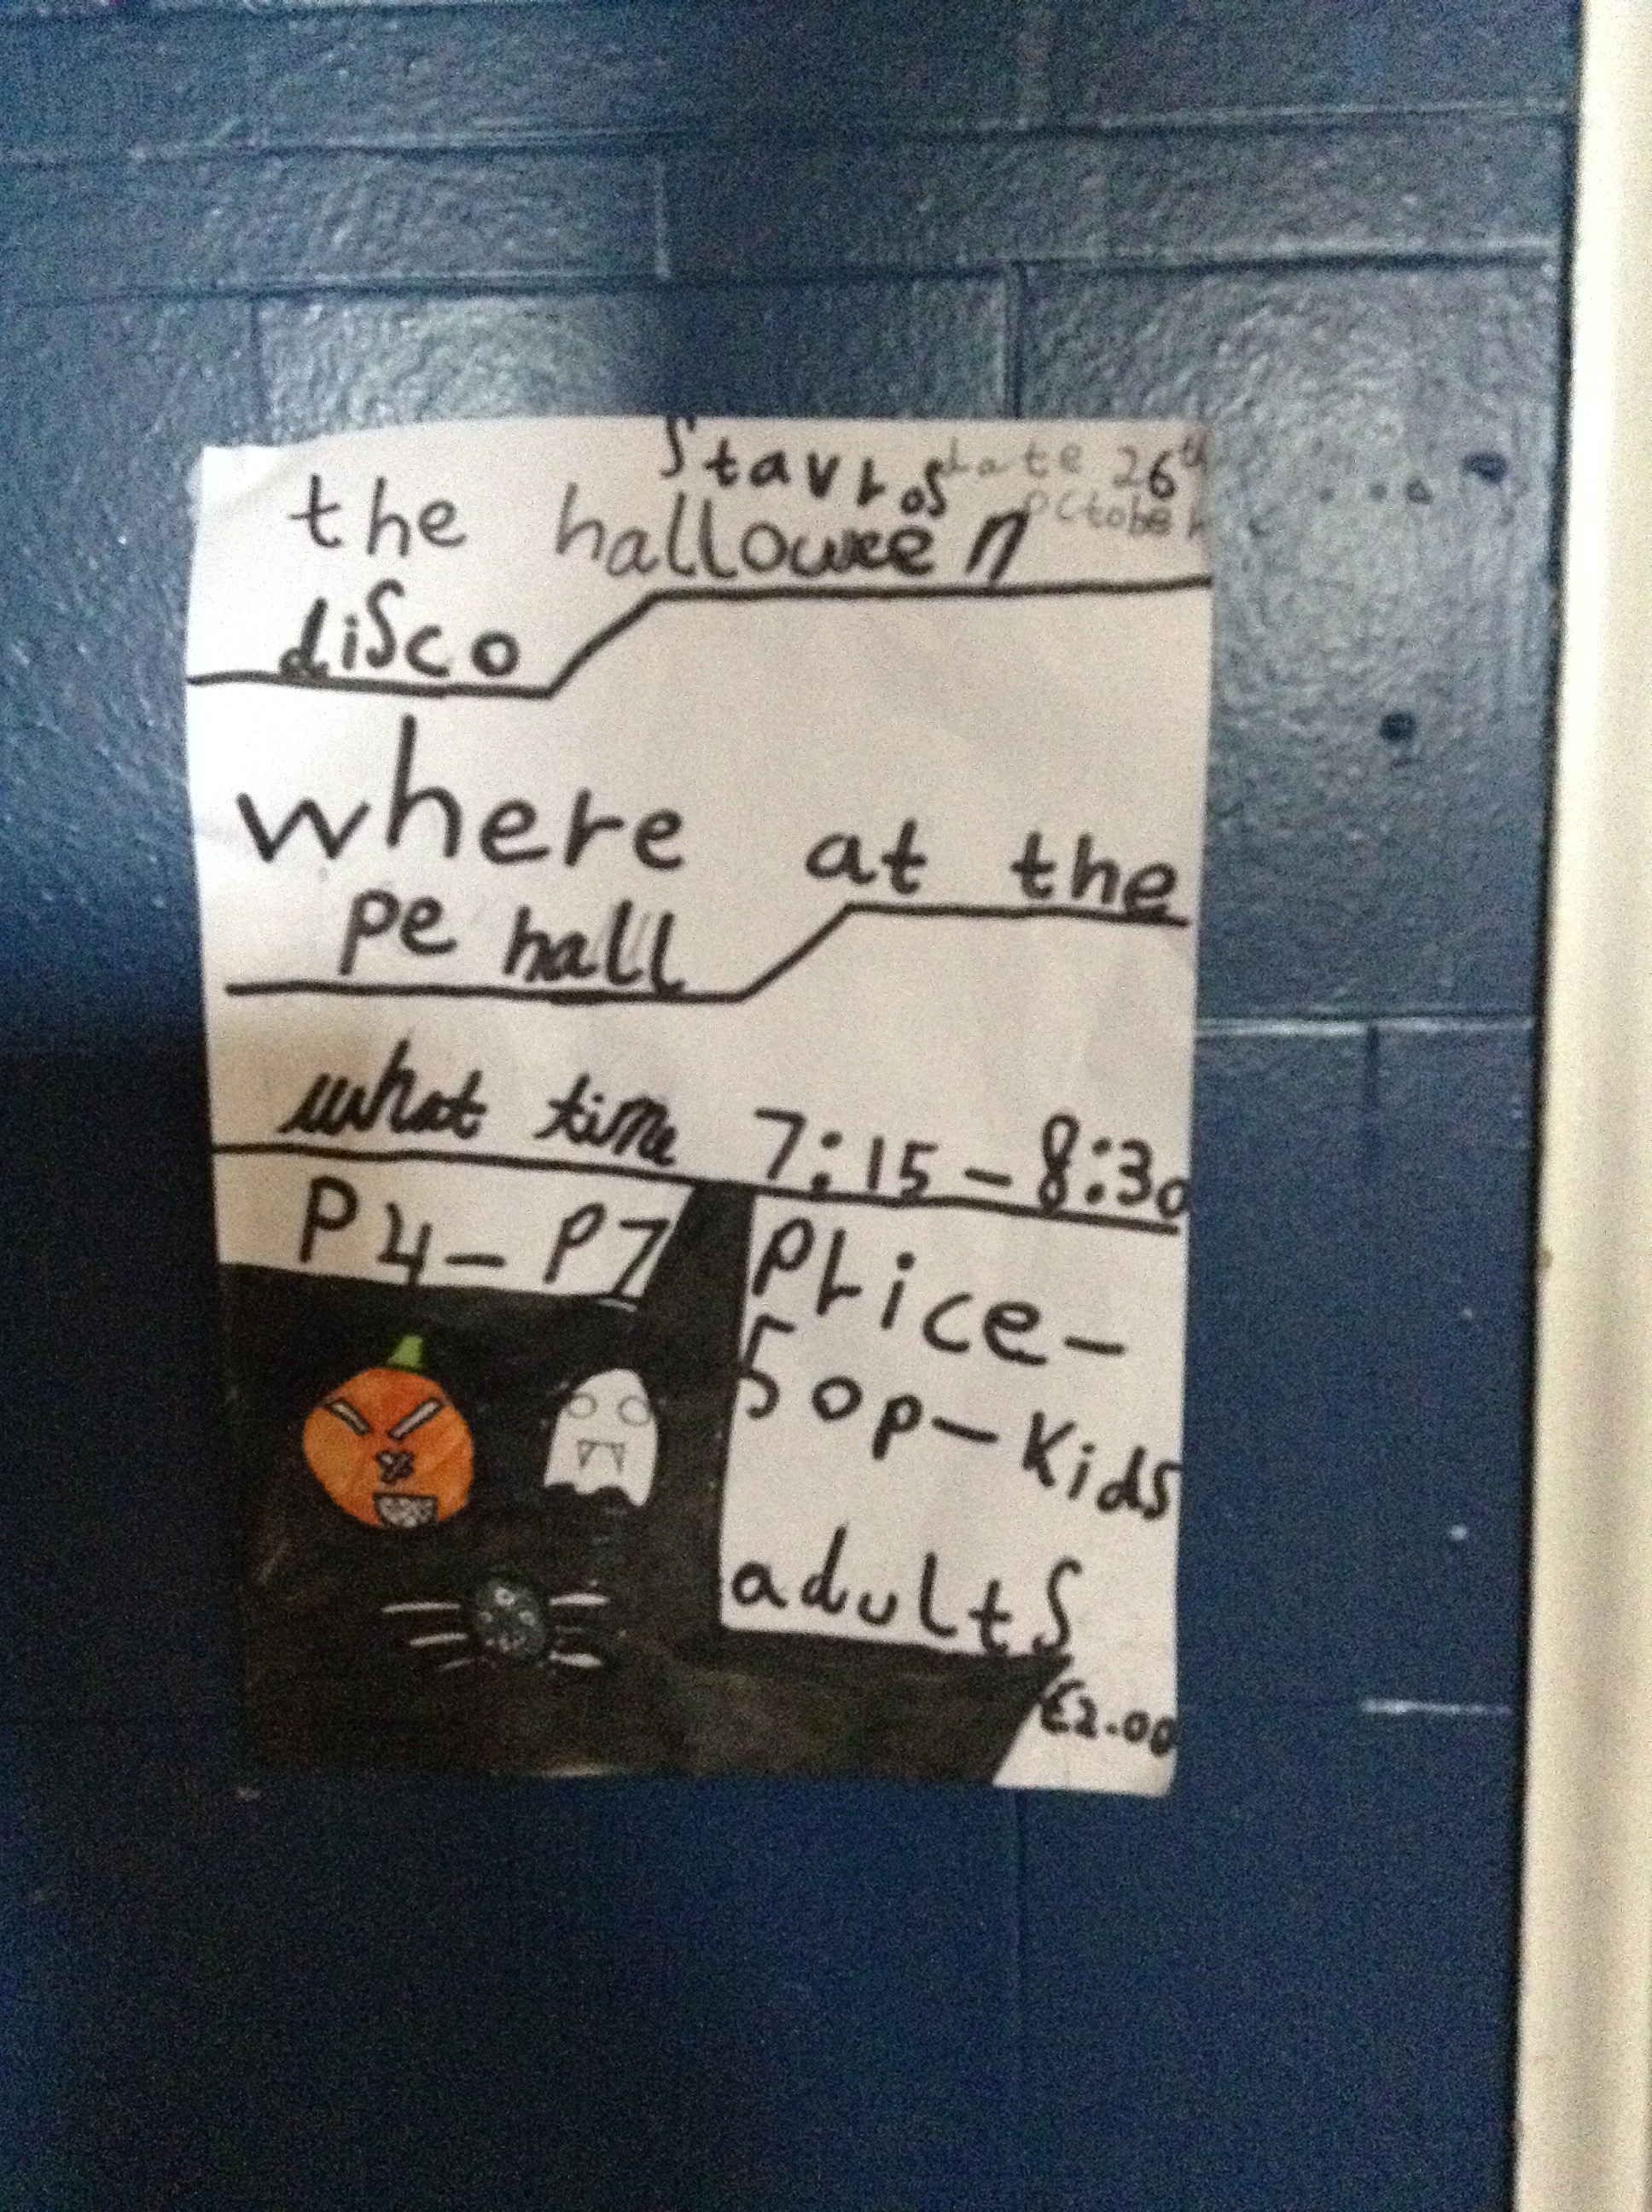 Stavros date 26th
October
the halloween
disco
where at the
pe hall
what time 7:15-8:30
P4-P7
Price-
50p-kids
adults
£2.00